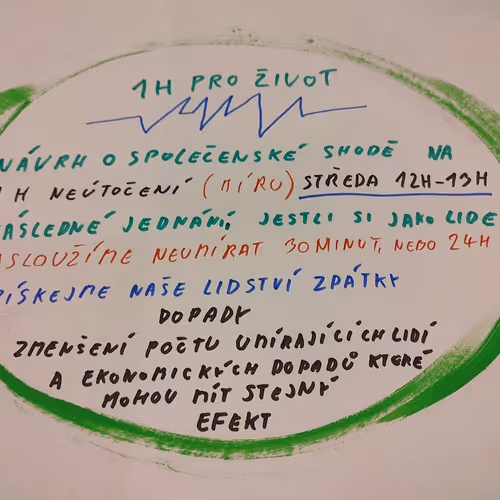 1H PRO ŽIVOT
NÁVRH O SPOLEČENSKÉ SHODĚ NA
1 H NEÚTOČENÍ (MÍRU) STŘEDA 12H-13H
NÁSLEDNÉ JEDNÁNÍ, JESTLI SI JAKO LIDE
ASLOUŽÍME NEUMÍRAT 30 MINUT, NEBO 24H
ZÍSKEJME NAŠE LIDSTVÍ ZPÁTKY
DOPADY
ZMENŠENÍ POČTU UMÍRAJÍCÍCH LIDÍ
A EKONOMICKÝCH DOPADŮ KTERÉ
MOHOU MÍT STEJNÝ
EFEKT